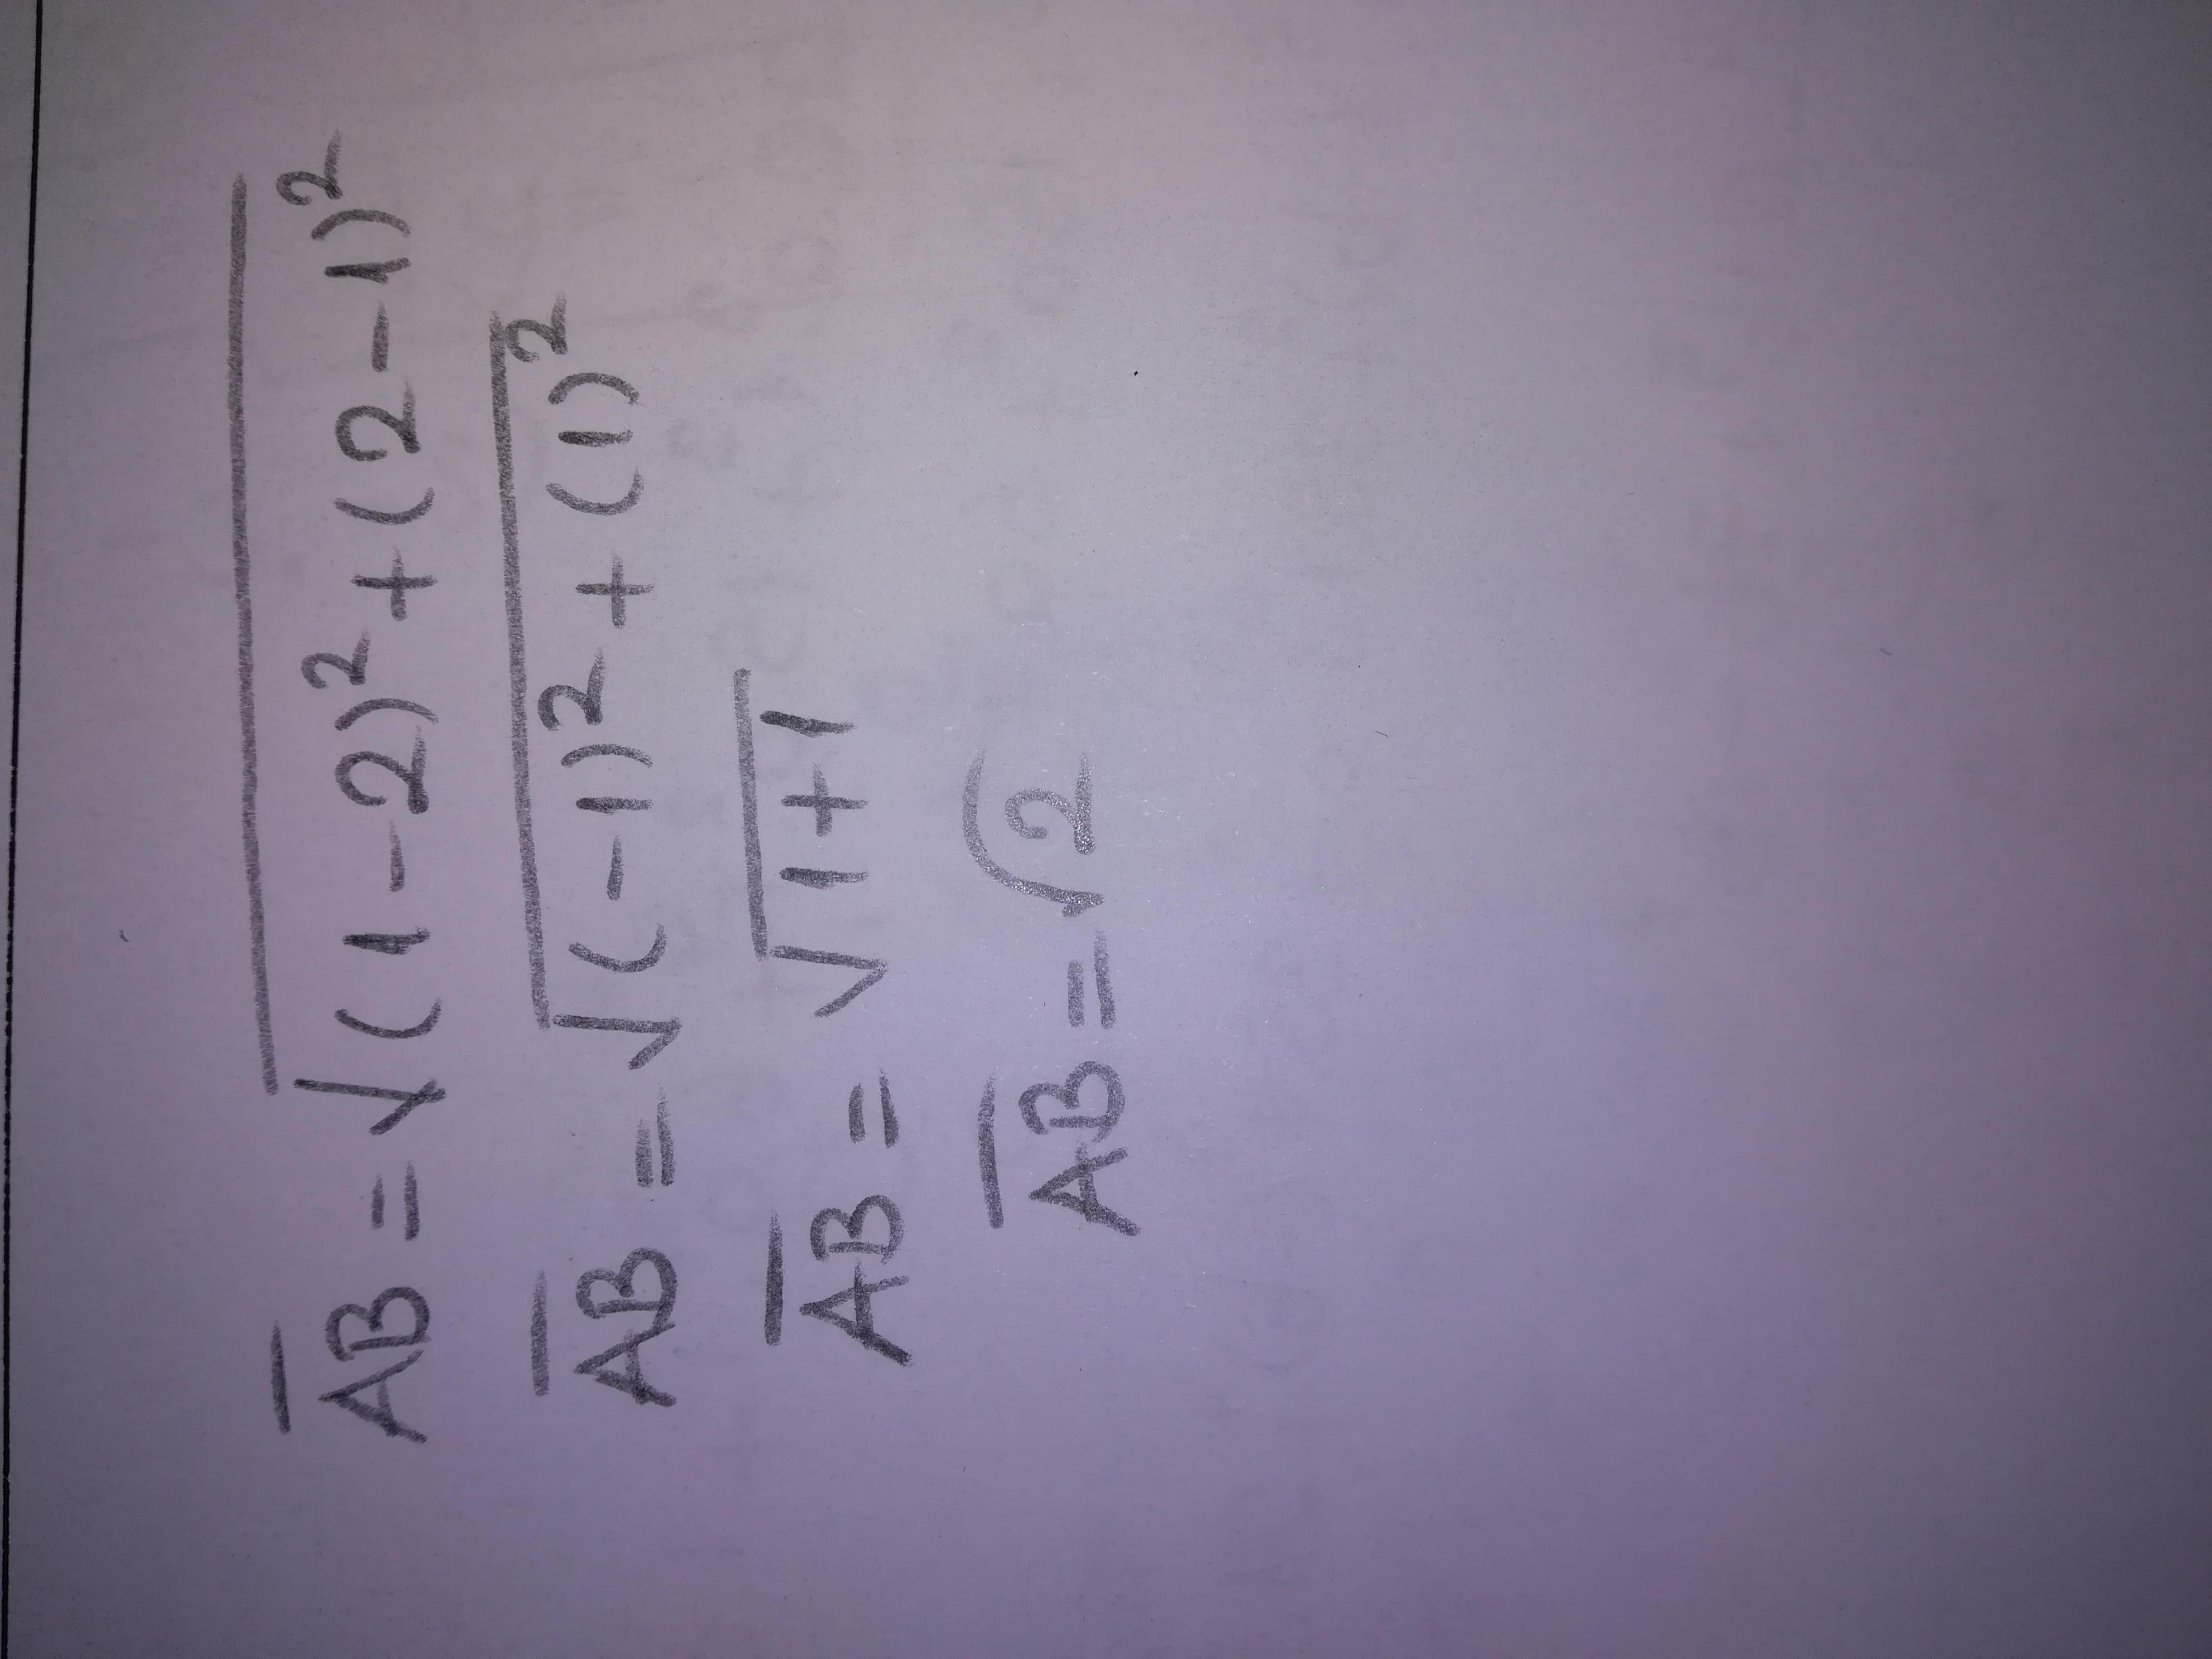 A̅B̅ = √(1-2)² + (2-1)²
A̅B̅ = √(-1)² + (1)²
A̅B̅ = √1+1
A̅B̅ = √2